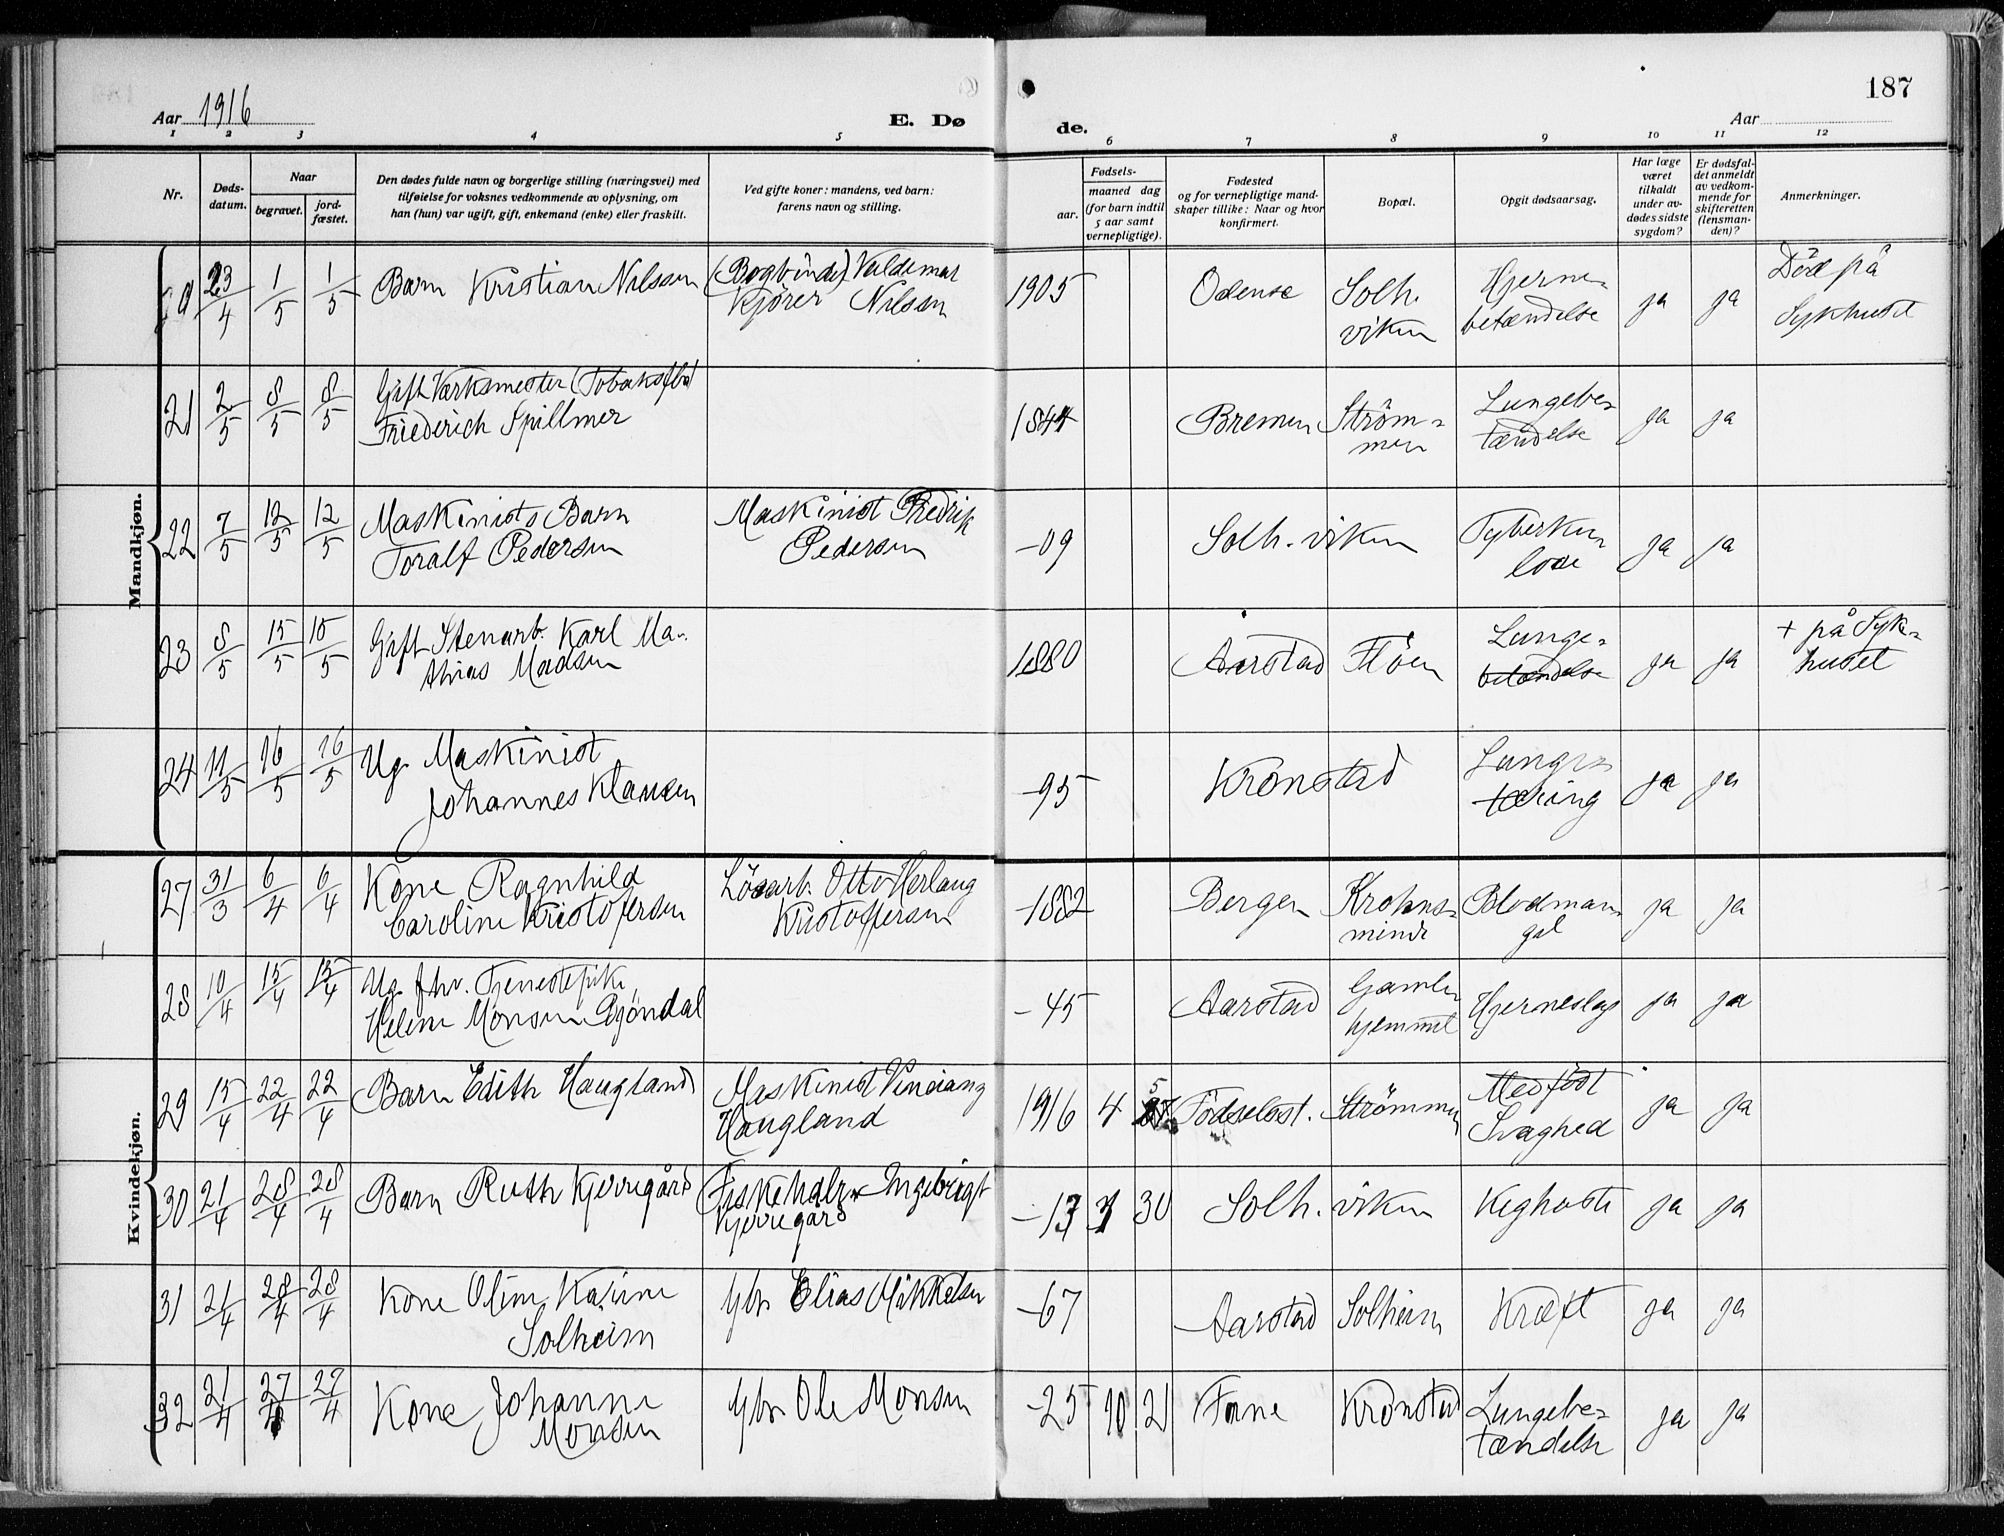 187
Aar 1916
E. Dø
de.
Aar
1 2 3 4 5 6 7 8 9 10 11 12
Nr.
Døds-
datum.
Naar
begravet.
jord-
fæstet.
Den dødes fulde navn og borgerlige stilling (næringsvei) med
tilføielse for voksnes vedkommende av oplysning, om
han (hun) var ugift, gift, enkemand (enke) eller fraskilt.
Ved gifte koner: mandens, ved barn:
farens navn og stilling.
Fødsels-
aar.
maaned dag
(for barn indtil
5 aar samt
vernepligtige).
Fødested
og for vernepligtige mand-
skaper tillike: Naar og hvor
konfirmert.
Bopæl.
Opgit dødsaarsag.
Har læge
været
tilkaldt
under av-
dødes sidste
sygdom?
Er dødsfal-
det anmeldt
av vedkom-
mende for
skifteretten
(lensman-
den)?
Anmerkninger.
Mandkjøn.
23/4 1/5 1/5 Barn Kristian Nilssen (Bogbinder) Valdemar
Kjører Nilsen
1905 Odense Solh.
viken
Hjerne-
betændelse
ja ja Död på
Sykhuset
21 2/5 8/5 8/5 Gift Værksmester (Tobaksfbr)
Friederich Spillmer
1844 Bremen Ström-
men
Lungebe-
tændelse
ja ja
22 7/5 12/5 12/5 Maskinists Barn
Toralf Pedersen
Maskinist Fredrik
Pedersen
-09 Solh.viken Tyberku
lose
ja ja
23 8/5 15/5 15/5 Gift Stenarb. Karl Ma-
thias Madsen
1880 Aarstad Flöen Lunge-
betændelse
ja ja + på Syke-
huset
24 11/5 16/5 16/5 Ug. Maskinist
Johannes Klausen
-95 Kronstad Lunge-
tæring
ja ja
Kvindekjøn.
27 31/3 6/4 6/4 Kone Ragnhild
Caroline Kristofersen
Lösarb. Otto Herlaug
Kristoffersen
-1882 Bergen Krohns-
minde
Blodman-
gel
ja ja
28 10/4 15/4 15/4 Ug. fhv. Tjenestepike
Helene Monsen Björndal
-45 Aarstad Gamle
hjemmet
Hjerneslag ja ja
29 15/4 22/4 22/4 Barn Edith Haugland Maskinist
Haugland
1916 4 5 Födselsst. Strömmen Medfödt
Svaghed
ja ja
30 21/4 28/4 28/4 Barn Ruth Kjerregård Fiskehalr Ingebrigt
Kjerregård
-13 30 Solh.viken Kighoste ja ja
31 21/4 28/4 28/4 Kone Oline Karine
Solheim
Gbr Elias Mikkelsen
-67 Aarstad Solheim Kræft ja ja
32 21/4 27/4 27/4 Kone Johanne
Monsen
Gbr Ole Monsen
-25 10 21 Fane Kronstad Lungebe-
tændelse
ja ja